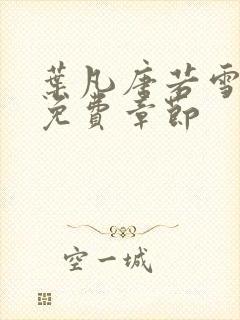 葉凡唐若雪
免費章節
空一城